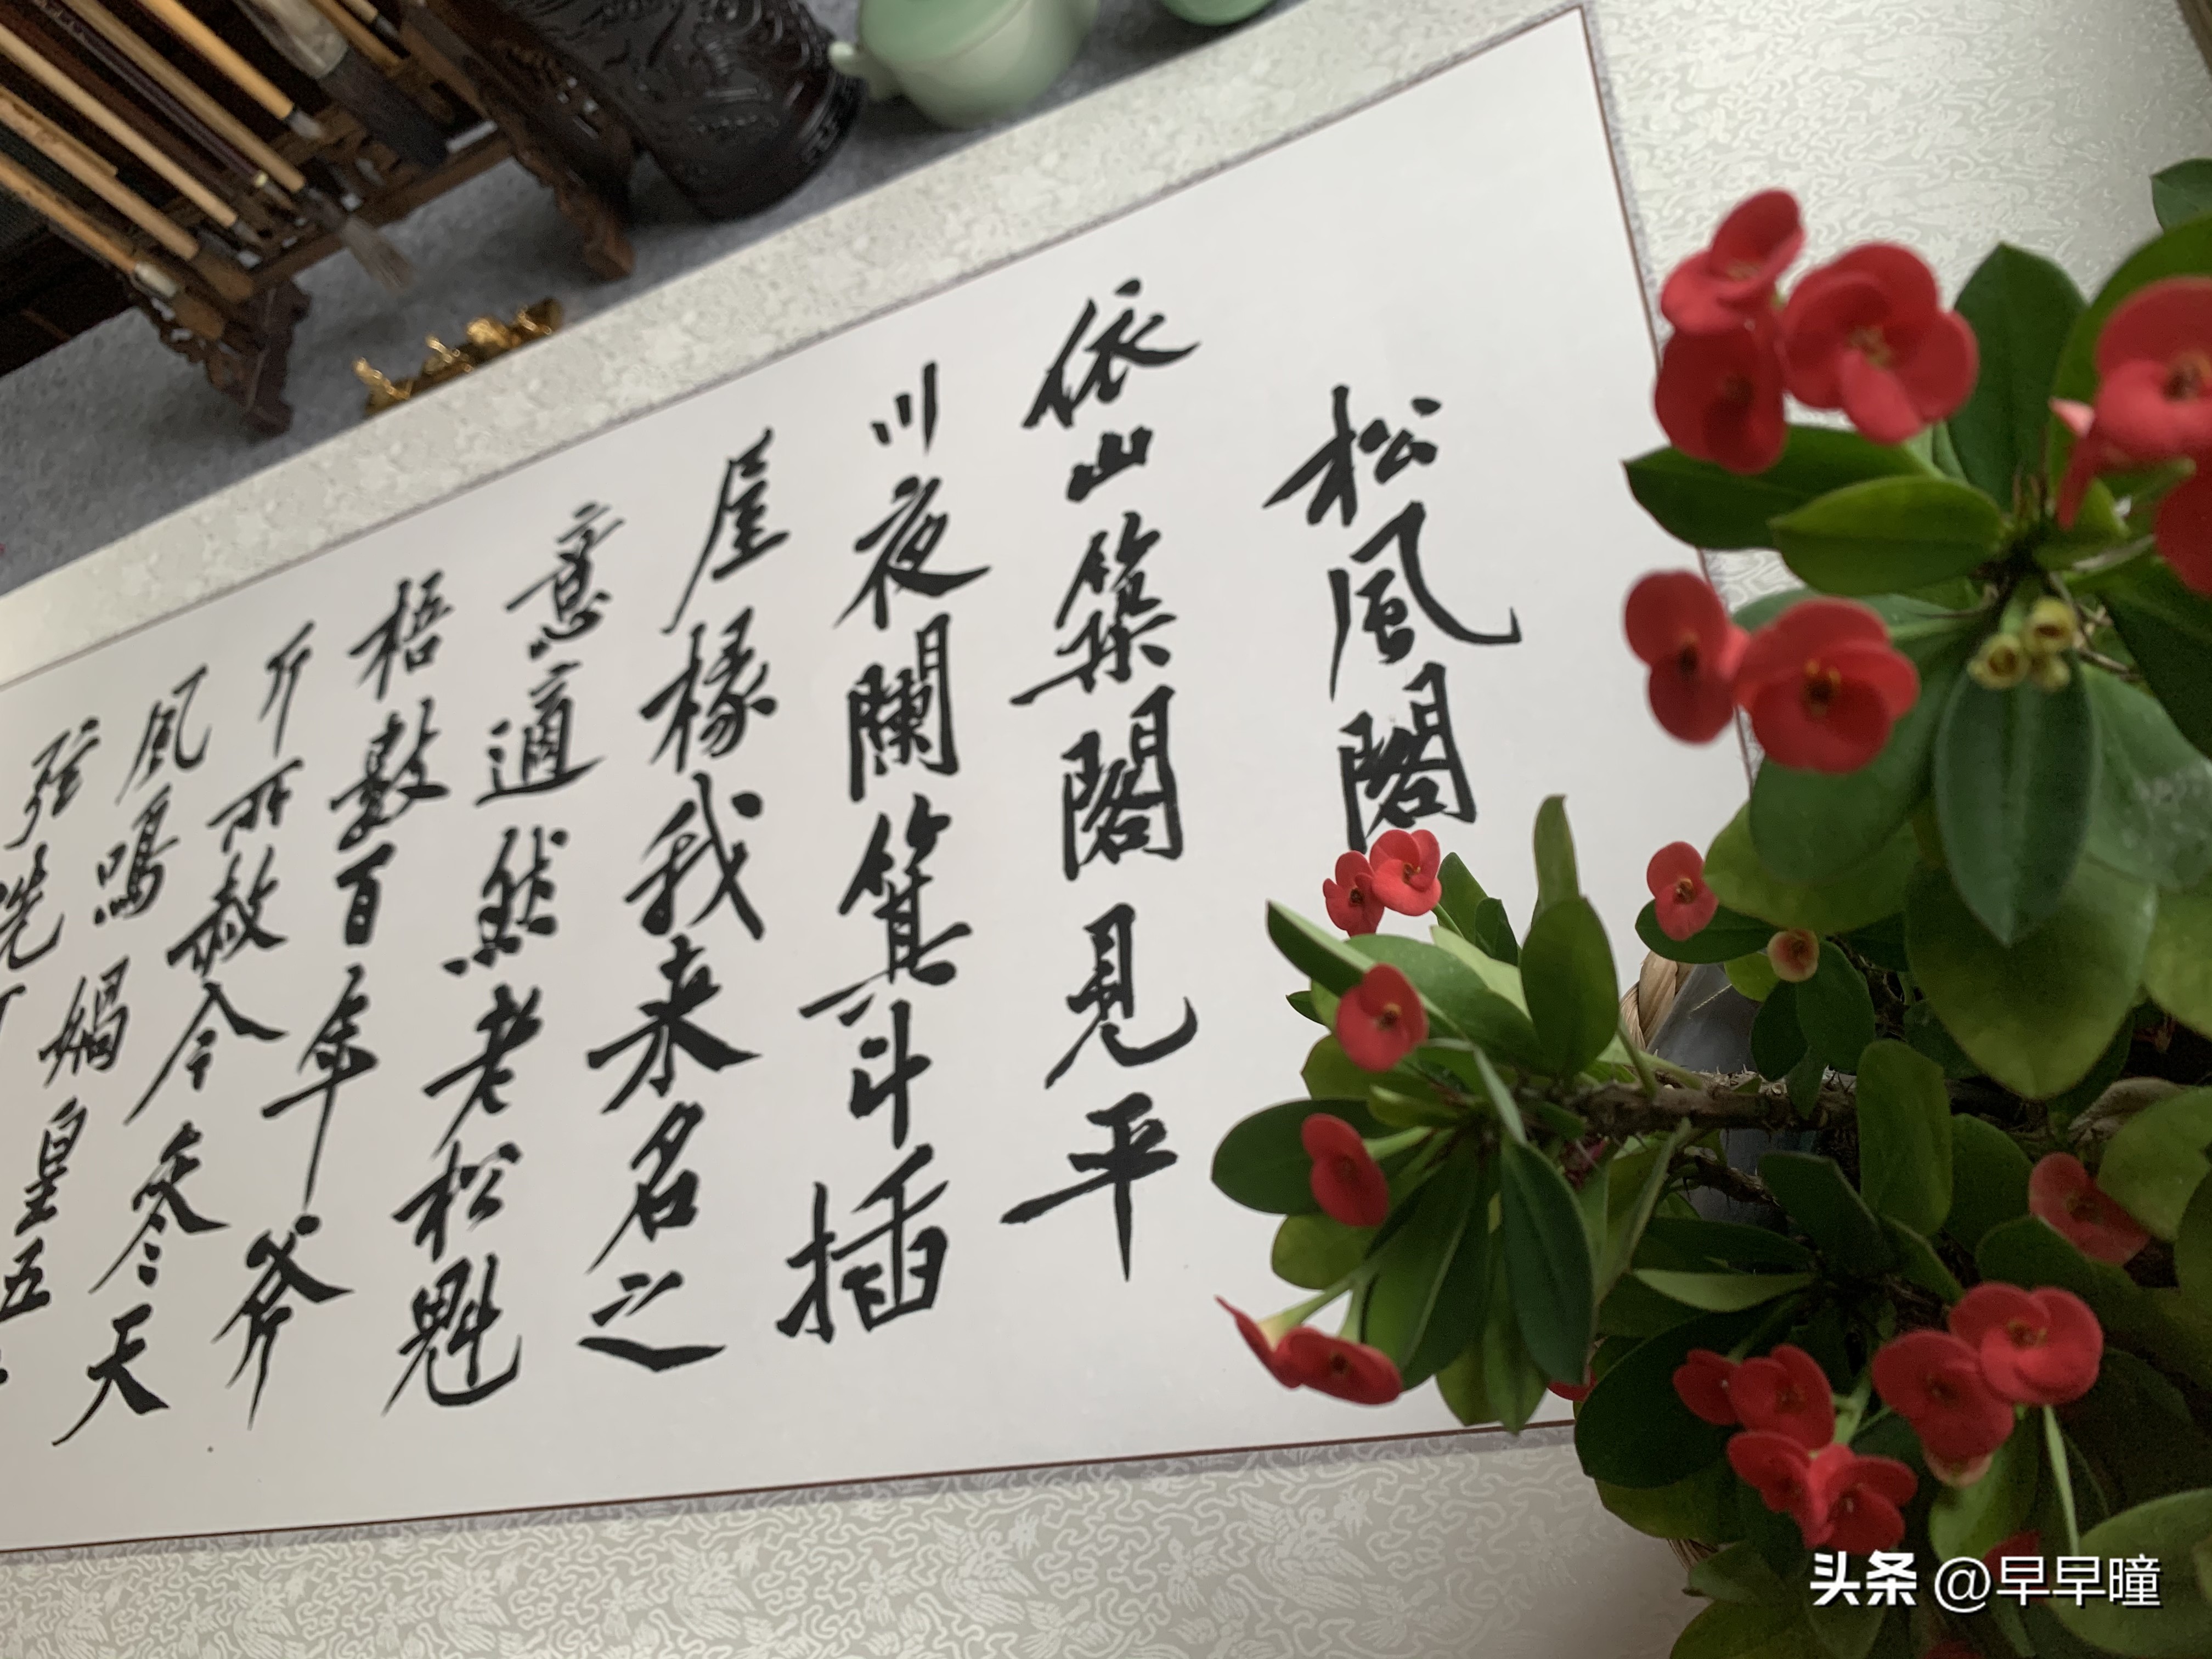 松風閣
依山築閣見平
川夜闌箕斗插
屋椽我来名之
意適然老松魁
梧數百年斧
斤所赦今参天
風鳴媧皇五
弦洗
头条 @早早曈